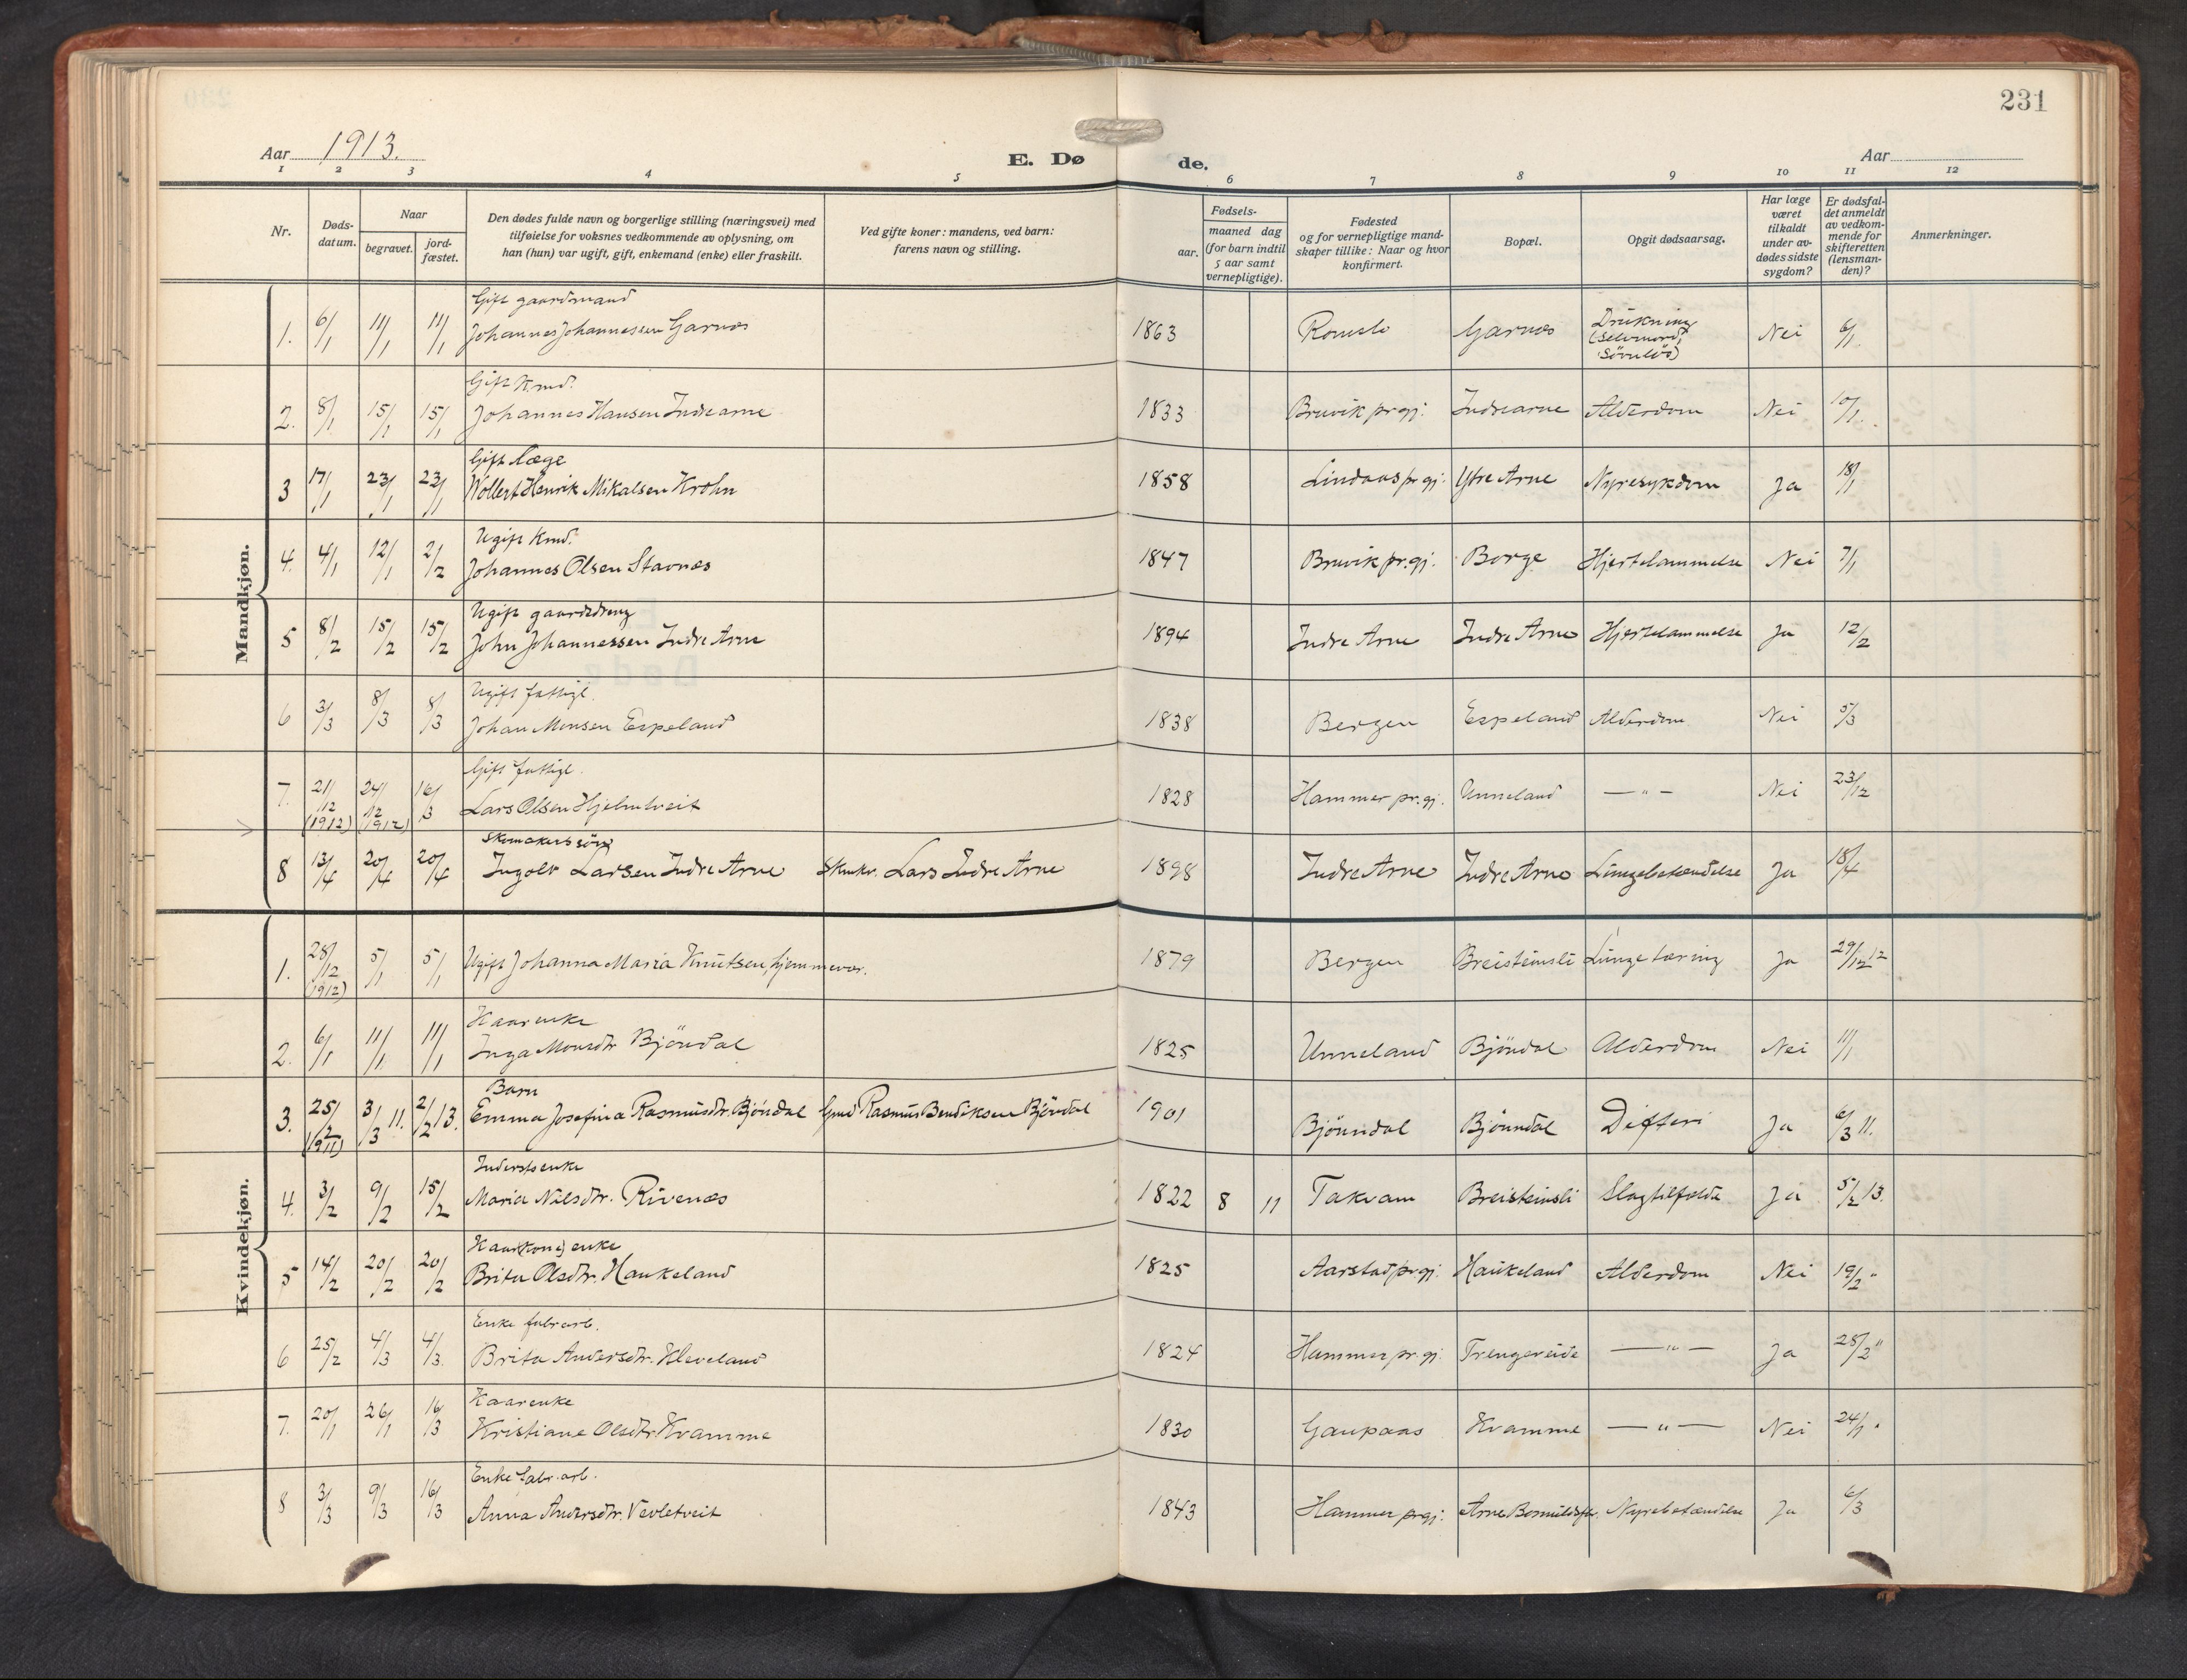 231
Aar 1913.
E. Dø de.
Aar
1 2 3 4 5 6 7 8 9 10 11 12
Nr.
Døds-
datum.
Naar
begravet.
jord-
fæstet.
Den dødes fulde navn og borgerlige stilling (næringsvei) med
tilføielse for voksnes vedkommende av oplysning, om
han (hun) var ugift, gift, enkemand (enke) eller fraskilt.
Ved gifte koner: mandens, ved barn:
farens navn og stilling.
Fødsels-
aar.
maaned dag
(for barn indtil
5 aar samt
vernepligtige).
Fødested
og for vernepligtige mand-
skaper tillike: Naar og hvor
konfirmert.
Bopæl.
Opgit dødsaarsag.
Har læge
været
tilkaldt
under av-
dødes sidste
sygdom?
Er dødsfal-
det anmeldt
av vedkom-
mende for
skifteretten
(lensman-
den)?
Anmerkninger.
Mandkjøn.
Gift gaardmand
1. 6/1 11/1 11/1 Johannes Johannessen Garnæs 1863 Romslo Garnæs Drukning (Selvmord, Nei 6/1
Gift Kmd.
2. 8/1 15/1 15/1 Johannes Hansen Indrearne 1833 Bruvik prgj. Indrearne Alderdom Nei 10/1
Gift læge
3 17/1 23/1 23/1 Wollert Henrik Mikalsen Krohn 1858 Lindaas prgj. Ytre Arne Nyresykdom Ja 18/1
Ugift Kmd.
4. 4/1 12/1 2/2 Johannes Olsen Stavnæs 1847 Bruvik pr.gj. Borge Hjertelammelse Nei 7/1
Ugift gaardedreng
5 8/2 15/2 15/2 John Johannessen Indre Arne 1894 Indre Arne Indre Arne Hjertelammelse Ja 12/2
Ugift fattigl.
6 3/3 8/3 8/3 Johan Monsen Espeland 1838 Bergen Espeland Alderdom Nei 5/3
Gift fattigl.
7. 21/12 (1912) 24/12 (1912) 16/3 Lars Olsen Hjelmtveit 1828 Hammer pr.gj. Unneland — " — Nei 23/12
Skomakerssøn
8 13/4 20/4 20/4 Ingolv Larsen Indre Arne Skmkr. Lars Indre Arne 1898 Indre Arne Indre Arne Lungebetændelse Ja 18/4
Kvindekjøn.
1. 28/12 (1912) 5/1 5/1 Ugift Johanna Maria Knutsen, hjemmevær. 1879 Bergen Breisteinsli Lungetæring Ja 29/12 12
Kaarenke
2. 6/1 11/1 11/1 Inga Monsdtr Bjöndal 1825 Unneland Bjöndal Alderdom Nei 11/1
Barn
3. 25/2 (1911) 3/3 11. 2/2 13. Emma Josefina Rasmusdtr. Bjöndal Gmd Rasmus Bendiksen Bjöndal 1901 Bjönndal Bjönndal Difteri Ja 6/3 11.
Inderstenke
4. 3/2 9/2 15/2 Maria Nilsdtr. Rivenæs 1822 8 11 Takvam Breisteinsli Slagtilfælde Ja 5/2 13.
Kaar(kone) enke
5 14/2 20/2 20/2 Brita Olsdtr. Haukeland 1825 Aarstad prgj. Haukeland Alderdom Nei 19/2 "
Enke fabrarb.
6 25/2 4/3 4/3. Brita Andersdtr. Kleveland 1824 Hammer pr.gj. Trengereide — " — Ja 28/2 "
Kaarenke
7. 20/1 26/1 16/3 Kristiane Olsdtr. Kvamme 1830 Gaupaas Kvamme — " — Nei 24/1 "
Enke fabr. arb.
8 3/3 9/3 16/3 Anna Andersdtr. Vevletveit 1843 Hammer prgj. Arne Nyrebetændelse Ja 6/3